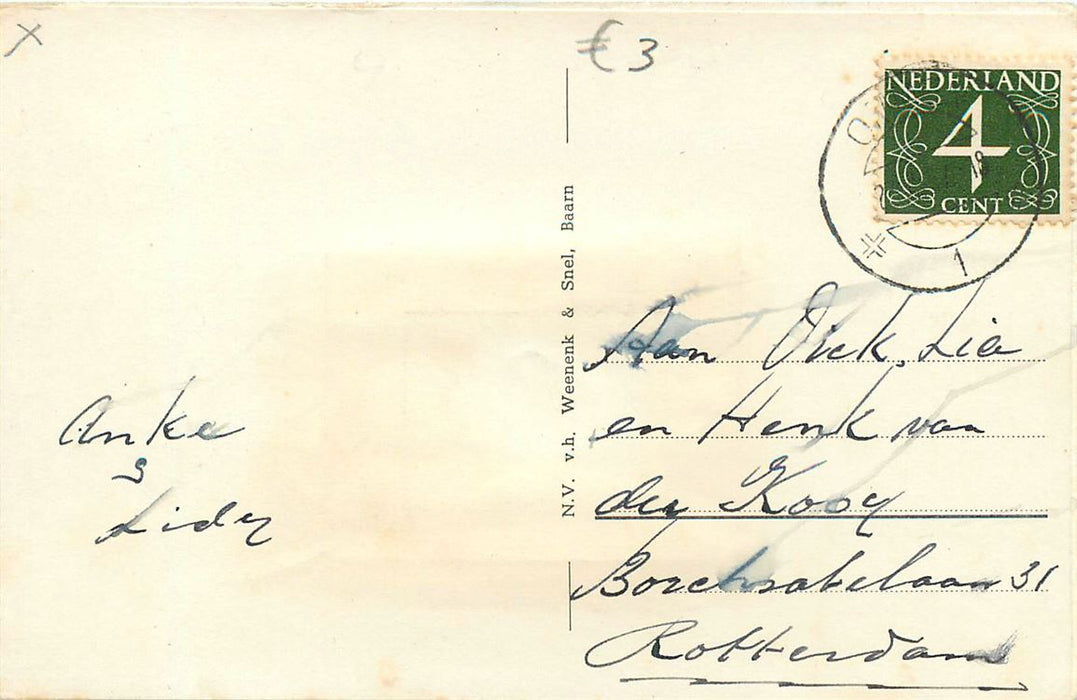 x
€3
NEDERLAND
4
CENT
18
1
N.V. v.h. Weenenk & Snel, Baarn
Anke
&
Lidy
Aan Dick, Lia
en Henk van
der Kooy
31
Rotterdam